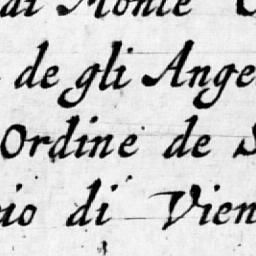 di Monte
de gli Ange
Ordine de S
io di Vien